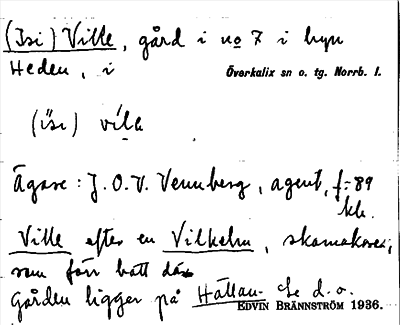 (Isi) Ville, gård i no 7 i byn
Heden, i Överkalix sn o. tg. Norrb. l.
Ägare: J. O. V. Vennberg, agent, f. -89
Ville efter en Vilhelm, skomakare,
som förr bott där
Gården ligger på Hällan. Se d. o.
EDVIN BRÄNNSTRÖM 1936.